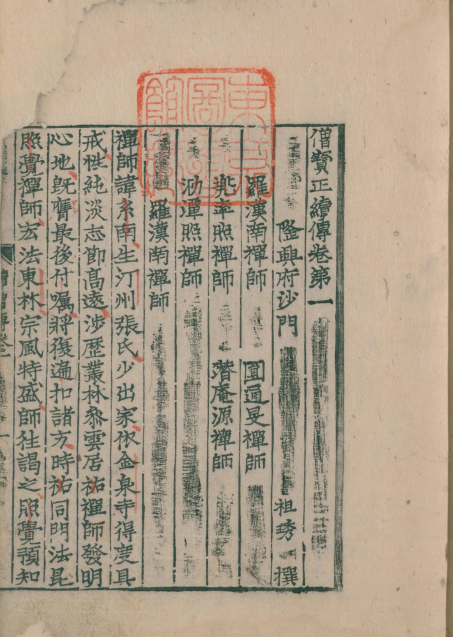 僧寶正續傳卷第一
隆興府沙門 祖琇 撰
羅漢南禪師 圓通旻禪師
兠率照禪師 潜庵源禪師
泐潭照禪師
羅漢南禪師
禪師諱系南生汀州張氏少出家依金泉寺得度具
戒性純淡志節高遠渉歴叢林參雲居祐禪師發明
心地旣膺最後付囑將復遍扣諸方時祐同門法昆
照覺禪師宏法東林宗風特盛師往謁之照覺預知